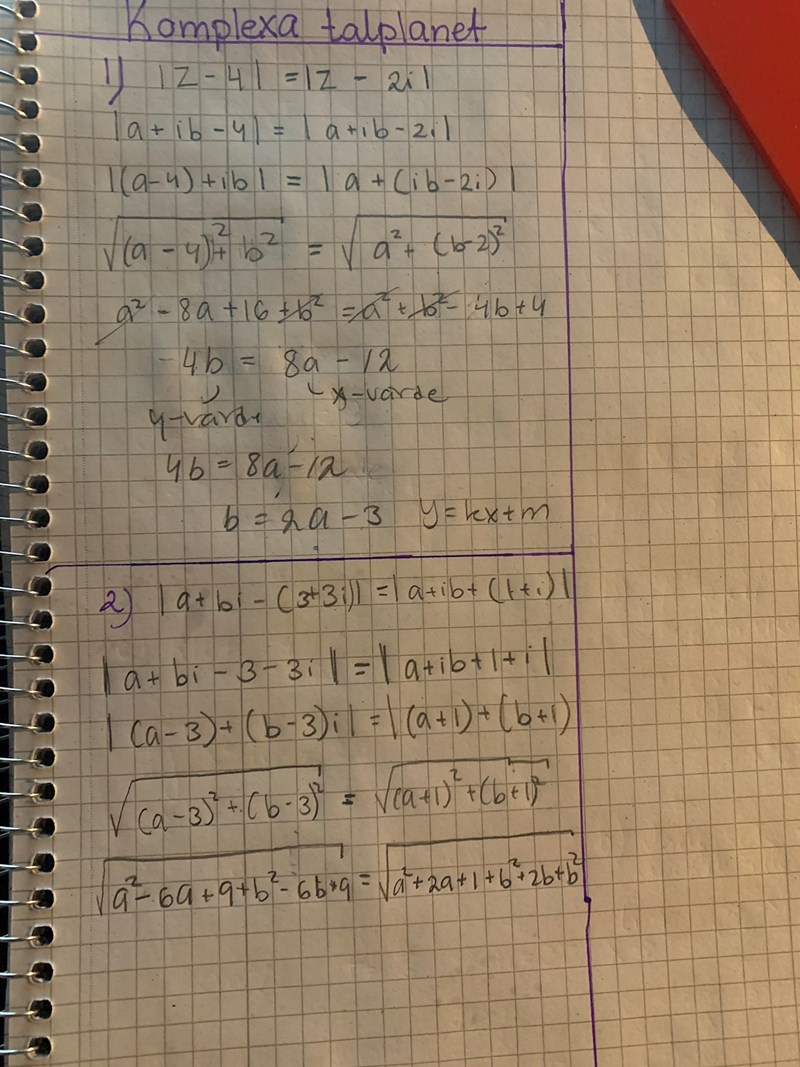 Komplexa talplanet
1) |Z - 4| = |Z - 2i|
|a + ib - 4| = |a + ib - 2i|
|(a-4) + ib| = |a + (ib - 2i)|
√((a - 4)² + b²) = √(a² + (b-2)²)
a² - 8a + 16 + b² = a² + b² - 4b + 4
-4b = 8a - 12
y-värde x-värde
4b = 8a - 12
b = 2a - 3 y = kx + m
2) |a + bi - (3+3i)| = |a + ib + (1+i)|
|a + bi - 3 - 3i| = |a + ib + 1 + i|
|(a-3) + (b-3)i| = |(a+1) + (b+1)
√((a-3)² + (b-3)²) = √((a+1)² + (b+1)²)
√(a² - 6a + 9 + b² - 6b + 9) = √(a² + 2a + 1 + b² + 2b + b²)